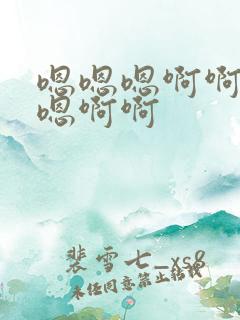 嗯嗯嗯啊啊
嗯啊啊
裴雪七_xs8
未经同意禁止转载